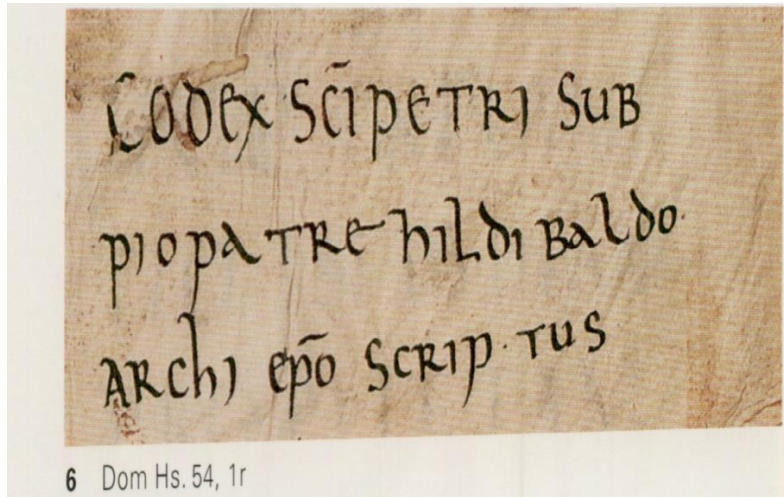 CODEX SC̄I PETRI SUB
PIO PATRE hILDIBALDO·
ARChI EPŌ SCRIP·TUS
6 Dom Hs. 54, 1r